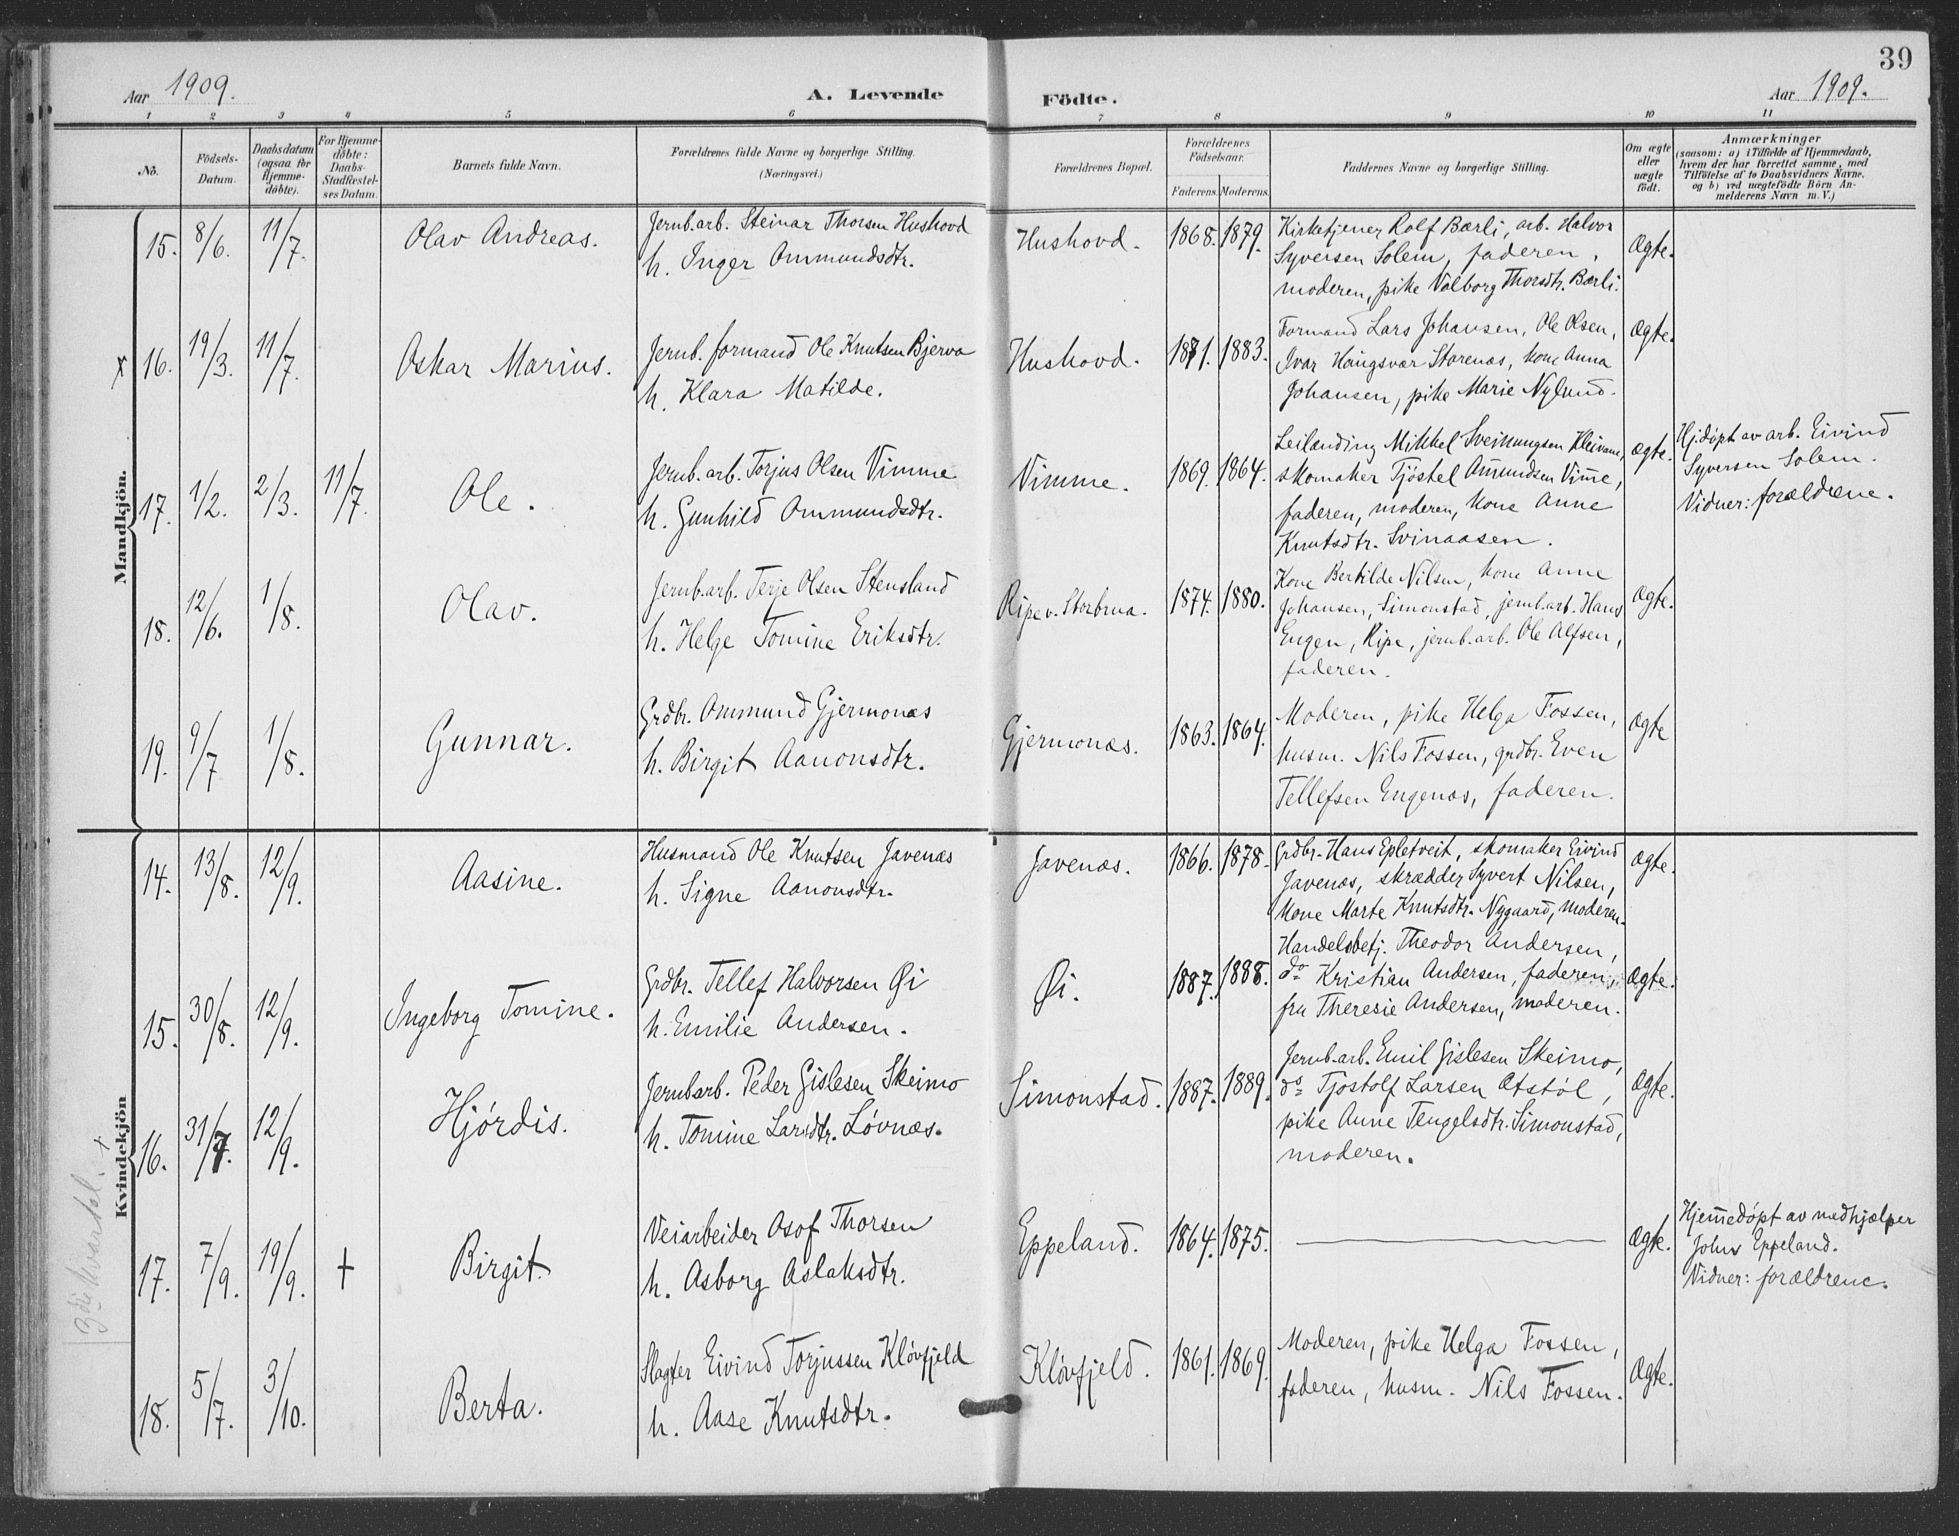 39
Aar 1909.
A. Levende
Födte.
Aar 1909.
1 2 3 4 5 6 7 8 9 10 11
No.
Födsels-
Datum.
Daabsdatum
(ogsaa for
Hjemme-
döbte).
For Hjemme-
döbte:
Daabs-
Stadfæstel-
ses Datum.
Barnets fulde Navn.
Forældrenes fulde Navne og borgerlige Stilling.
(Næringsvei.)
Forældrenes Bopæl.
Forældrenes
Födselsaar.
Faderens. Moderens.
Faddernes Navne og borgerlige Stilling.
Om ægte
eller
uægte
födt.
Anmærkninger
(saasom: a) i Tilfælde af Hjemmedaab,
hvem der har forrettet samme, med
Tilföielse af to Daabsvidners Navne,
og b) ved uægtefödte Börn An-
melderens Navn m. V.)
Mandkjön.
15. 8/6. 11/7. Olav Andreas.
Jernb.arb. Steinar Thorsen Hushovd
h. Inger Ommundsdtr.
Hushovd. 1868. 1879.
Kirketjener Rolf Bærli, arb. Halvor
Syversen Solem, faderen,
moderen, pike Valborg Thorsdtr. Bærli.
Ægte.
x 16. 19/3. 11/7. Oskar Marius.
Jernb. formand Ole Knutsen Bjerva
h. Klara Matilde.
Hushovd. 1871. 1883.
Formand Lars Johansen, Ole Olsen,
Ivar Haugsvær Storenæs, kone Anna
Johansen, pike Marie Nylund.
Ægte.
17. 1/2. 2/3. 11/7. Ole.
Jernb.arb. Torjus Olsen Vimme
h. Gunhild Ommundsdtr.
Vimme. 1869. 1864.
Leilænding Mikkel Sveinungsen Kleivane,
skomaker Tjøstel Omundsen Vime,
faderen, moderen, kone Anne
Knutsdtr. Svinaasen.
Ægte.
Hj.døpt av arb. Eivind
Syversen Solem.
Vidner: forældrene.
18. 12/6. 1/8. Olav.
Jernb.arb. Terje Olsen Stensland
h. Helge Tomine Eriksdtr.
Ripe v. Storbrua. 1874. 1880.
Kone Bertilde Nilsen, kone Anne
Johansen, Simonstad, jernb.arb. Hans
Engen, Ripe, jernb.arb. Ole Alfsen,
faderen.
Ægte.
19. 9/7 1/8. Gunnar.
Grdbr. Ommund Gjermonæs
h. Birgit Aanonsdtr.
Gjermonæs. 1863. 1864.
Moderen, pike Helga Fossen,
husm. Nils Fossen, grdbr. Even
Tellefsen Engenæs, faderen.
Ægte
Kvindekjön
3die kvartal. +
14. 13/8. 12/9. Aasine.
Husmand Ole Knutsen Javenæs
h. Signe Aanonsdtr.
Javenæs. 1866. 1878.
Grdbr. Hans Epletveit, skomaker Eivind
Javenæs, skrædder Syvert Nilsen,
kone Marte Knutsdtr. Nygaard, moderen.
Ægte.
15. 30/8. 12/9. Ingeborg Tomine.
Grdbr. Tellef Halvorsen Øi
h. Emilie Andersen.
Øi. 1887. 1888.
Handelsbetj. Theodor Andersen,
do Kristian Andersen, faderen,
fru Theresie Andersen, moderen.
Ægte.
16. 31/7. 12/9. Hjórdis.
Jernbarb. Peder Gislesen Skeimo
h. Tomine Larsdtr. Løvnæs.
Simonstad. 1887. 1889.
Jernb.arb. Emil Gislesen Skeimo,
do Tjostolf Larsen Atstøl,
pike Anne Tengelsdtr. Simonstad,
moderen.
Ægte.
17. 7/9. 19/9. + Birgit.
Veiarbeider Asof Thorsen
h. Asborg Aslaksdtr.
Eppeland. 1864. 1875.
Ægte.
Hjemedøpt av medhjælper
Johs Eppeland.
Vidner: forældrene.
18. 5/7. 3/10. Berta.
Slagter Eivind Torjussen Kløvfjeld
h. Aase Knutsdtr.
Kløvfjeld. 1861. 1869.
Moderen, pike Helga Fossen,
faderen, husm. Nils Fossen.
Ægte.